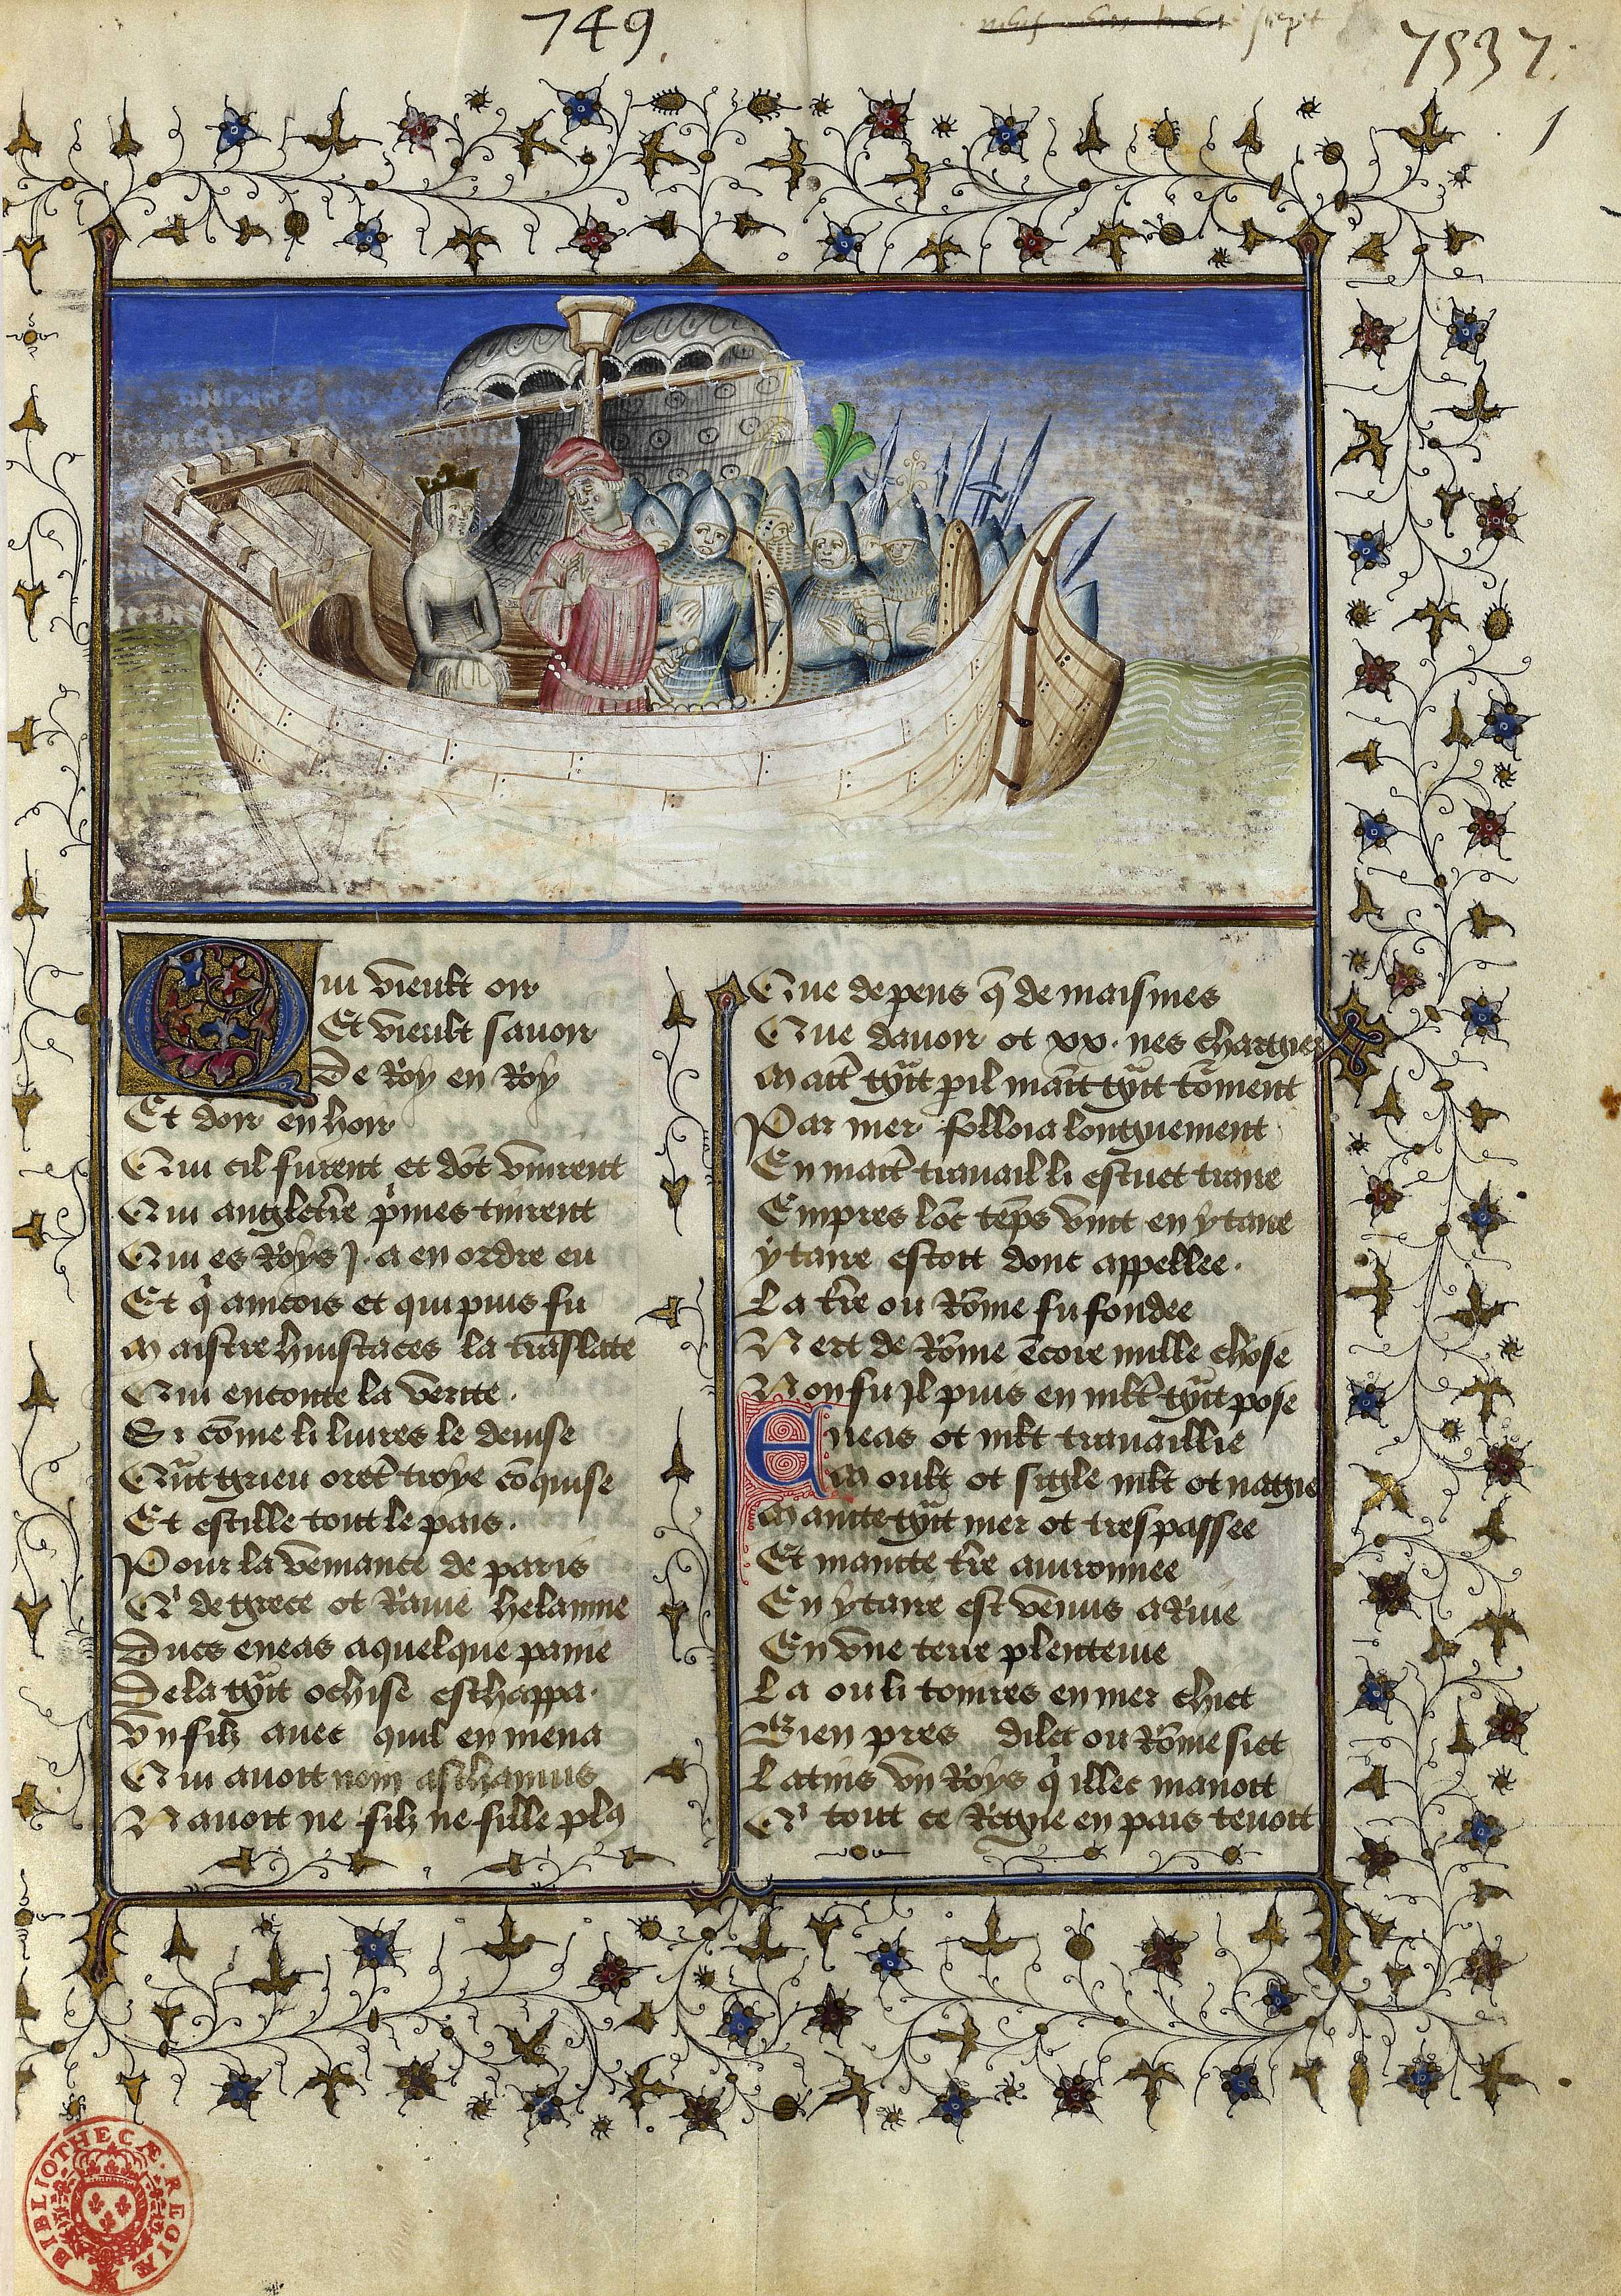 749.
7537.
1
Qui vieult oir
Et vieult savoir
De Roy en Roy
Et doir en hoir
Qui cil furent et dōt vinrent
Qui angletr̄e p̍mes tinrent
Qui es Roys J. a en ordre eu
Et q̍ aincois et qui puis fu
Maistre huistaces la trāslate
Qui en conte la verite.
Si cōme li livres le devise
Qūt grieu oret troye cōquise
Et essille tout le pais.
Pour la venjance de paris
Q̍ de grece ot Ravie helainne
Ducs eneas a quelque paine
De la gr̃t ochise eschappa.
Un filz avec quil en mena
Qui avoit nom aschanius
N avoit ne filz ne fille plꝯ
Que de pens q̄ de maisnies
Que davoir ot xx. nes chargies
Mait gr̃t pil mait gr̃t tōment
Par mer folloia longuement
En mait travail li estuet traire
Empres lōc tēps vint en ytarie
ytarie estoit donc appellee.
La tr̄e ou Rōme fu fondee
N ert de Rōme ēcore nulle chose
Non fu Jl puis en mlt gr̃t pose
Eneas ot mlt travaillie
Moult ot sigle mlt ot nagie
Mainte gr̃t mer ot trespassee
Et mainte tr̄e avironnee
En ytarie est venus a Rive
En une terre plenteive
La ou li toivres en mer chiet
Bien pres dilec ou Rōme siet
Latins un Roys q̍ illec manoit
Q̍ tout ce Regne en pais tenoit
BIBLIOTHECÆ REGIÆ